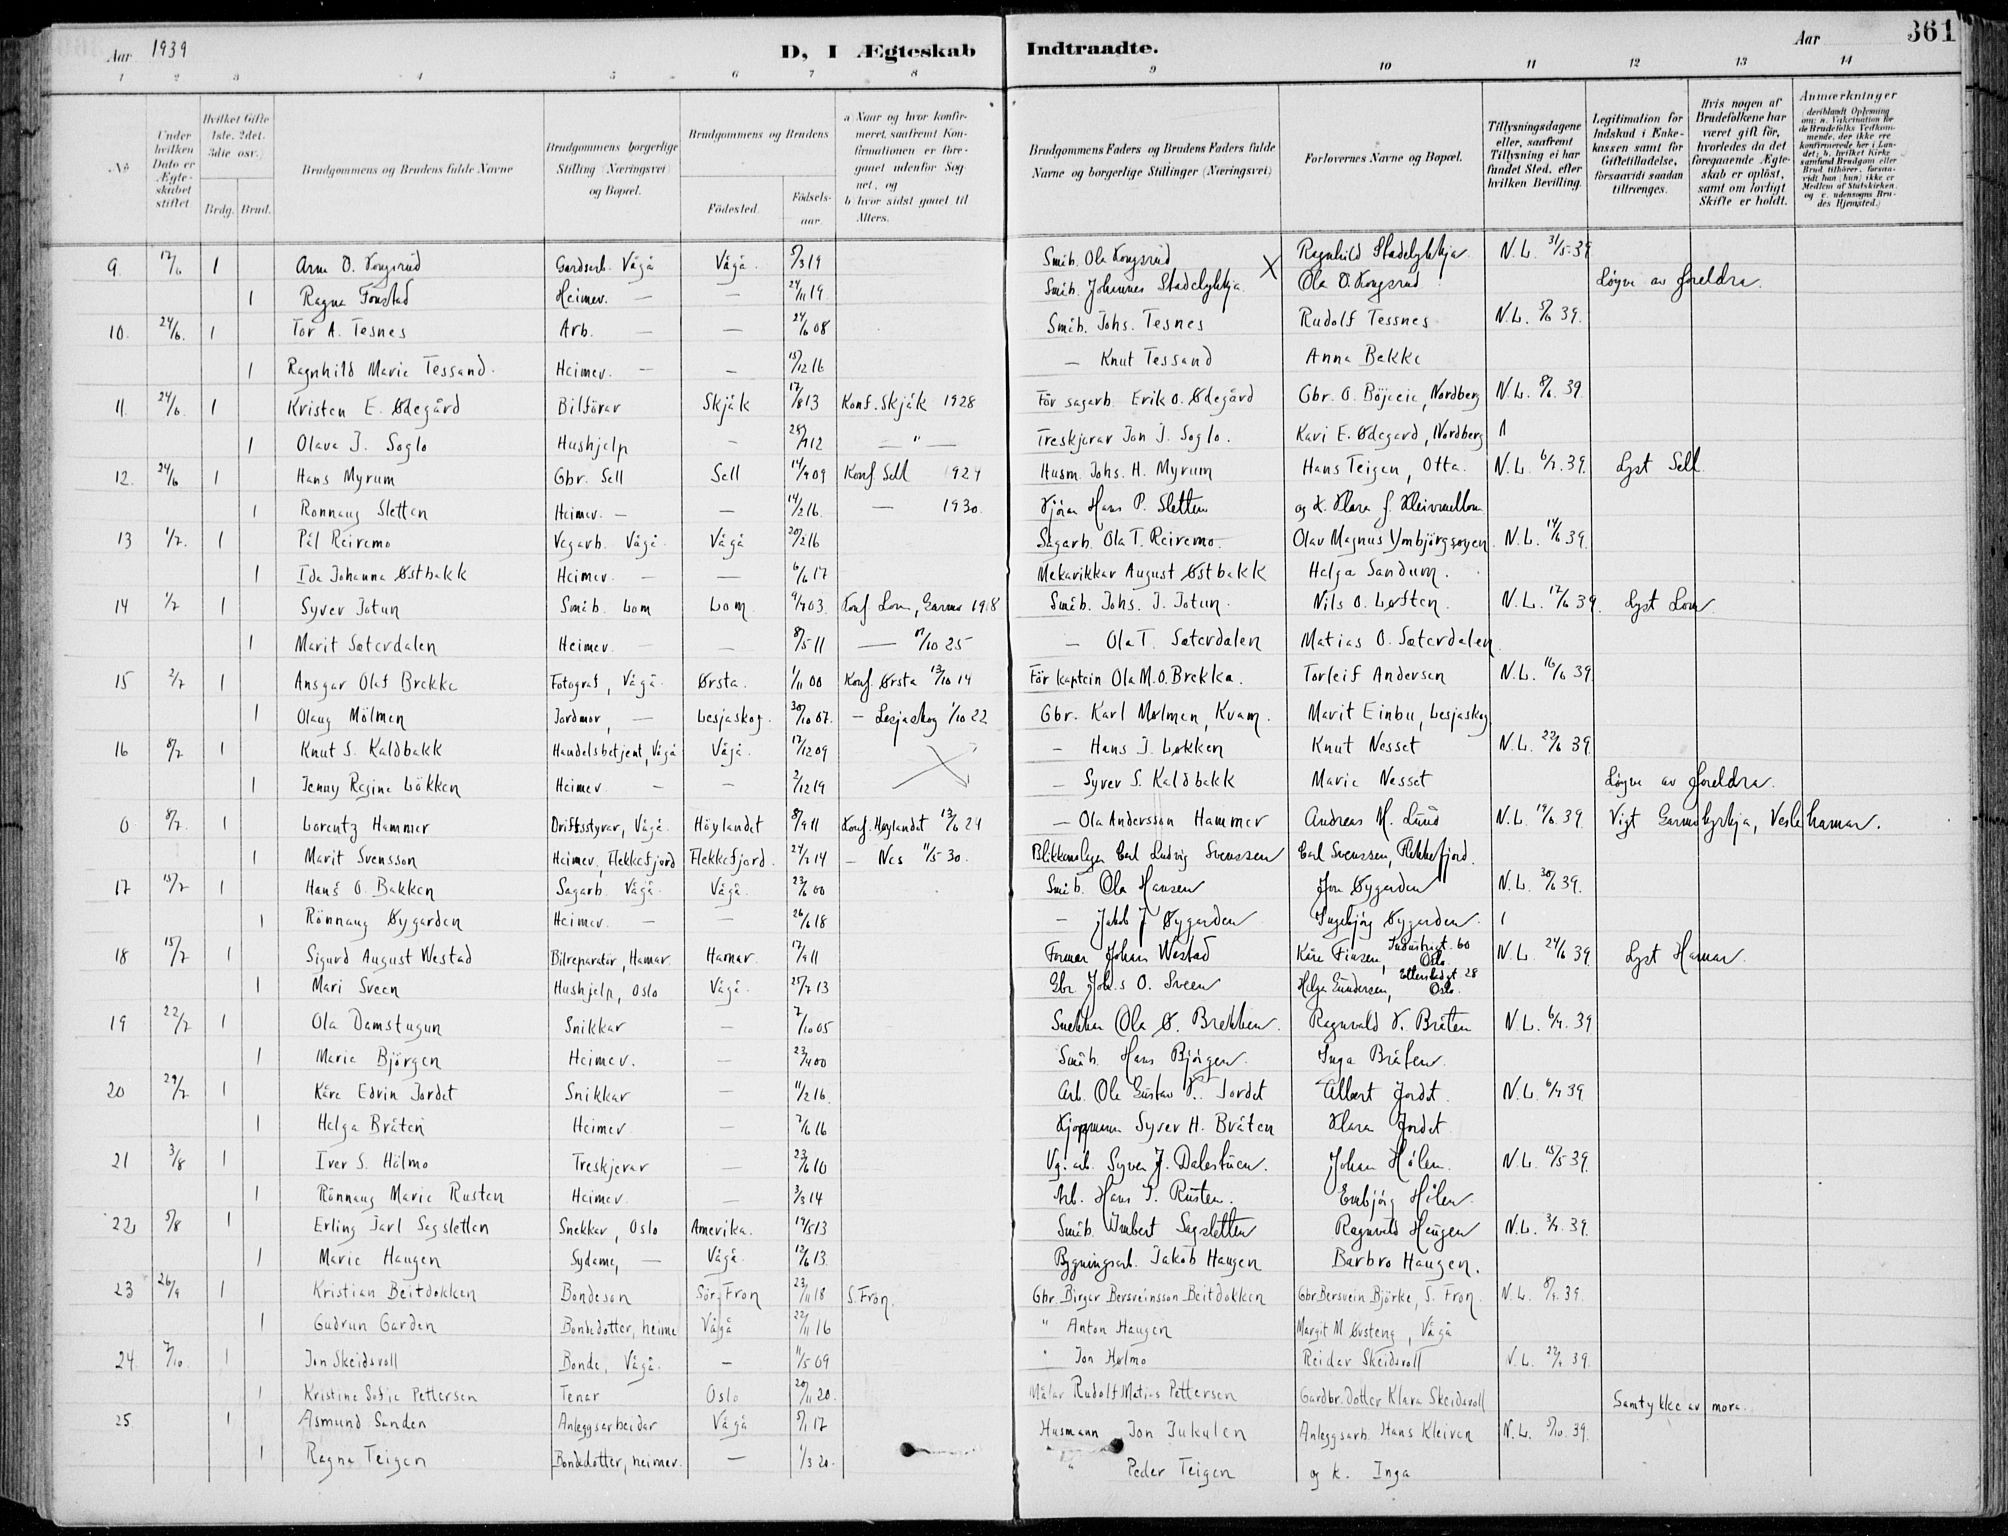 Aar 1939 D, I Ægteskab Indtraadte. Aar 361
1 2 3 4 5 6 7 8 9 10 11 12 13 14
No.
Under hvilken Dato er Ægteskabet stiftet
Hvilket Gifte 1ste, 2det, 3die osv.)
Brdg. Brud.
Brudgommens og Brudens fulde Navne
Brudgommens borgerlige Stilling (Næringsvei) og Bopæl.
Brudgommens og Brudens
Fødested. Fødsels-aar.
a Naar og hvor konfirmeret, saafremt Konfirmationen er foregaaet udenfor Sognet, og b hvor sidst gaaet til Alters.
Brudgommens Faders og Brudens Faders fulde Navne og borgerlige Stillinger (Næringsvei)
Forlovernes Navne og Bopæl.
Tillysningsdagene eller, saafremt Tillysning ei har fundet Sted, efter hvilken Bevilling.
Legitimation for Indskud i Enkekassen samt for Giftetilladelse, forsaavidt saadan tiltrænges.
Hvis nogen af Brudefolkene har været gift før, hvorledes da det foregaaende Ægteskab er opløst, samt om lovligt Skifte er holdt.
Anmærkninger (deriblandt Oplysning om: a. Vakcination for de Brudefolks Vedkommende, der ikke ere konfirmerede her i Landet; b. hvilket Kirkesamfund Brudgom eller Brud tilhører, forsaavidt han (hun) ikke er Medlem af Statskirken, og c. udensogns Brudes Hjemsted.)
9. 17/6 1 Arne O. Kongsrud Gardsarb. Vågå Vågå. 5/3 19 Småb. Ola Kongsrud X Ragnhild Stadelykkja N.L. 31/5-39
1 Ragna Fonstad Heimev. — — 24/11 19 Småb. Johannes Stadelykkja Ola O. Kongsrud Løyve av foreldra.
10. 24/6. 1 Tor A. Tesnes Arb. — — 24/6 08 Småb. Johs. Tesnes Rudolf Tessnes N.L. 5/6 39.
1 Ragnhild Marie Tessand. Heimev. — — 15/12 16 — Knut Tessand Anna Bekke
11. 24/6. 1 Kristen E. Ødegård Bilförar Skjåk 17/8 13 Konf. Skjåk 1928 För sagarb. Erik O. Ødegård Gbr. O. Böjaeie, Nordberg N.L. 8/6. 39.
1 Olava J. Soglo Hushjelp — 28/9 12 — " — Treskjerar Jon J. Soglo. Kari E. Ødegård, Nordberg
12. 24/6 1 Hans Myrum Gbr. Sell Sell 14/9 09 Konf. Sell 1924 Husm. Johs. H. Myrum Hans Teigen, Otta. N.L. 6/7. 39. Lyst Sell
1 Ronnaug Sletten Heimev. — — 14/2 16. — 1930. Hans P. Sletten og K. Klara
13 1/7. 1 Pål Reiremo Vegarb. Vågå. Vågå 20/2 16 Sagarb. Ola T. Reiremo. Olav Magnus Ymbjörgsøyen. N.L. 14/6 39.
1 Ida Johanna Østbakk Heimev. — — 6/6 17 Mekanikkar August Østbakk Helga Sandum.
14 1/7 1 Syver Jotun Småb. Lom Lom 9/7 03. Konf Lom, Garmo 1918 Småb. Johs. J. Jotun. Nils O. Løften. N.L. 17/6 39. Lyst Lom
1 Marit Sæterdalen Heimev. — — 8/5 11 — 11/10 25 — Ola T. Sæterdalen Matias O. Sæterdalen.
15 2/7 1 Ansgar Olaf Brekke Fotograf, Vågå. Ørsta. 1/11 00 Konf. Ørsta 13/10 14 För kaptein Ola M. O. Brekke. Torleif Andersen N.L. 16/6 39.
1 Olaug Mölmen Jordmor, — Lesjaskog. 30/10 07. — Lesjaskog 1/10 22 Gbr. Karl Mølmen, Kvam. Marit Einbu, Lesjaskog
16 8/7 1 Knut S. Kaldbakk Handelsbetjent, Vågå Vågå. 17/12 09 — Hans J. Løkken Knut Nesset N.L. 22/6 39.
1 Jenny Regine Løkken Heimev. — — 2/12 19 — Syver S. Kaldbakk Marie Nesset Løyve av foreldra.
0 8/7. 1 Lorentz Hammer Driftsstyrar, Vågå. Höylandet 8/9 11 Konf. Høylandet 13/6 24 — Ola Andersson Hammer Andreas M. Lund N.L. 19/6. 39 Vigt Garmokyrkja, Veslehamar.
1 Marit Svensson Heimev., Flekkefjord Flekkefjord. 24/2 14 — Nes 11/5 30. Blikkenslager Carl Ludvig Svenssen Carl Svenssen, Flekkefjord.
17 15/7 1 Hans O. Bakken Sagarb. Vågå. Vågå. 23/6 00 Småb. Ola Hansen Jon Øygarden N.L. 30/6 39.
1 Rönnaug Øygarden Heimev. — — 26/6 18 — Jakob J. Øygarden Ingebjörg Øygarden.
18 15/7 1 Sigurd August Westad Bilreparatör, Hamar. Hamar. 17/9 11 Former Johan Westad Kåre Finsen, Industrigt. 60 Oslo. N.L. 24/6 39. Lyst Hamar.
1 Mari Sveen Hushjelp, Oslo Vågå. 25/7 13 Gbr. Johs O. Sveen Helga Gundersen, Etterstadgt. 28 Oslo.
19 22/7 1 Ola Damstugun Snikkar — 7/10 05 Snekker Ola Ø. Brekken. Ragnvald K. Bråten N.L. 6/7. 39
1 Marie Björgen Heimev. — 23/4 00 Småb. Hans Bjørgen. Inga Bråten.
20 29/7 1 Kåre Edvin Jordet Snikkar — 11/2 16. Arb. Ole Gustav K. Jordet Albert Jordet. N.L. 6/7 39.
1 Helga Bråten Heimev. — 7/6 16 Kjøpmann Syver H. Bråten Klara Jordet.
21 3/8 1 Iver S. Hölmo Treskjerar — 23/6 10 Vg. arb. Syver J. Dalestuen. Johan Hølen. N.L. 15/5 39.
1 Rönnaug Marie Rusten Heimev. — 3/3 14 Arb. Hans J. Rusten. Embjörg Hølen.
22 5/8 1 Erling Jarl Sagsletten Snekkar, Oslo Amerika. 19/5 13 Småb. Imbert Sagsletten Ragnvald Haugen N.L. 3/7. 39.
1 Marie Haugen Sydame, — Vågå 12/6 13. Bygningsarb. Jakob Haugen Barbro Haugen.
23 26/9 1 Kristian Beitdokken Bondeson Sör-Fron 23/11 18 S. Fron. Gbr. Birger Bersveinsson Beitdokken Gbr Bersvein Björke, S. Fron. N.L. 8/9. 39.
1 Gudrun Garden Bondedotter, heime Vågå 22/11 16 " Anton Haugen Margit M. Øvsteng, Vågå
24. 7/10. 1 Jon Skeidsvoll Bonde, Vågå. — 11/5 09 " Jon Holmo Reidar Skeidsvoll N.L. 22/9. 39.
1 Kristine Sofie Pettersen Tenar Oslo 20/11 20. Målar Rudolf Matias Pettersen Gardbr. dotter Klara Skeidsvoll Samtykke av mora.
25 1 Asmund Sanden Anleggsarbeidar Vågå 5/1 17 Husmann Jon Jukulen Anleggsarb. Hans Kleiven N.L. 5/10. 39.
1 Ragna Teigen Bondedotter, heimev. — 1/3 20. " Peder Teigen og k. Inga